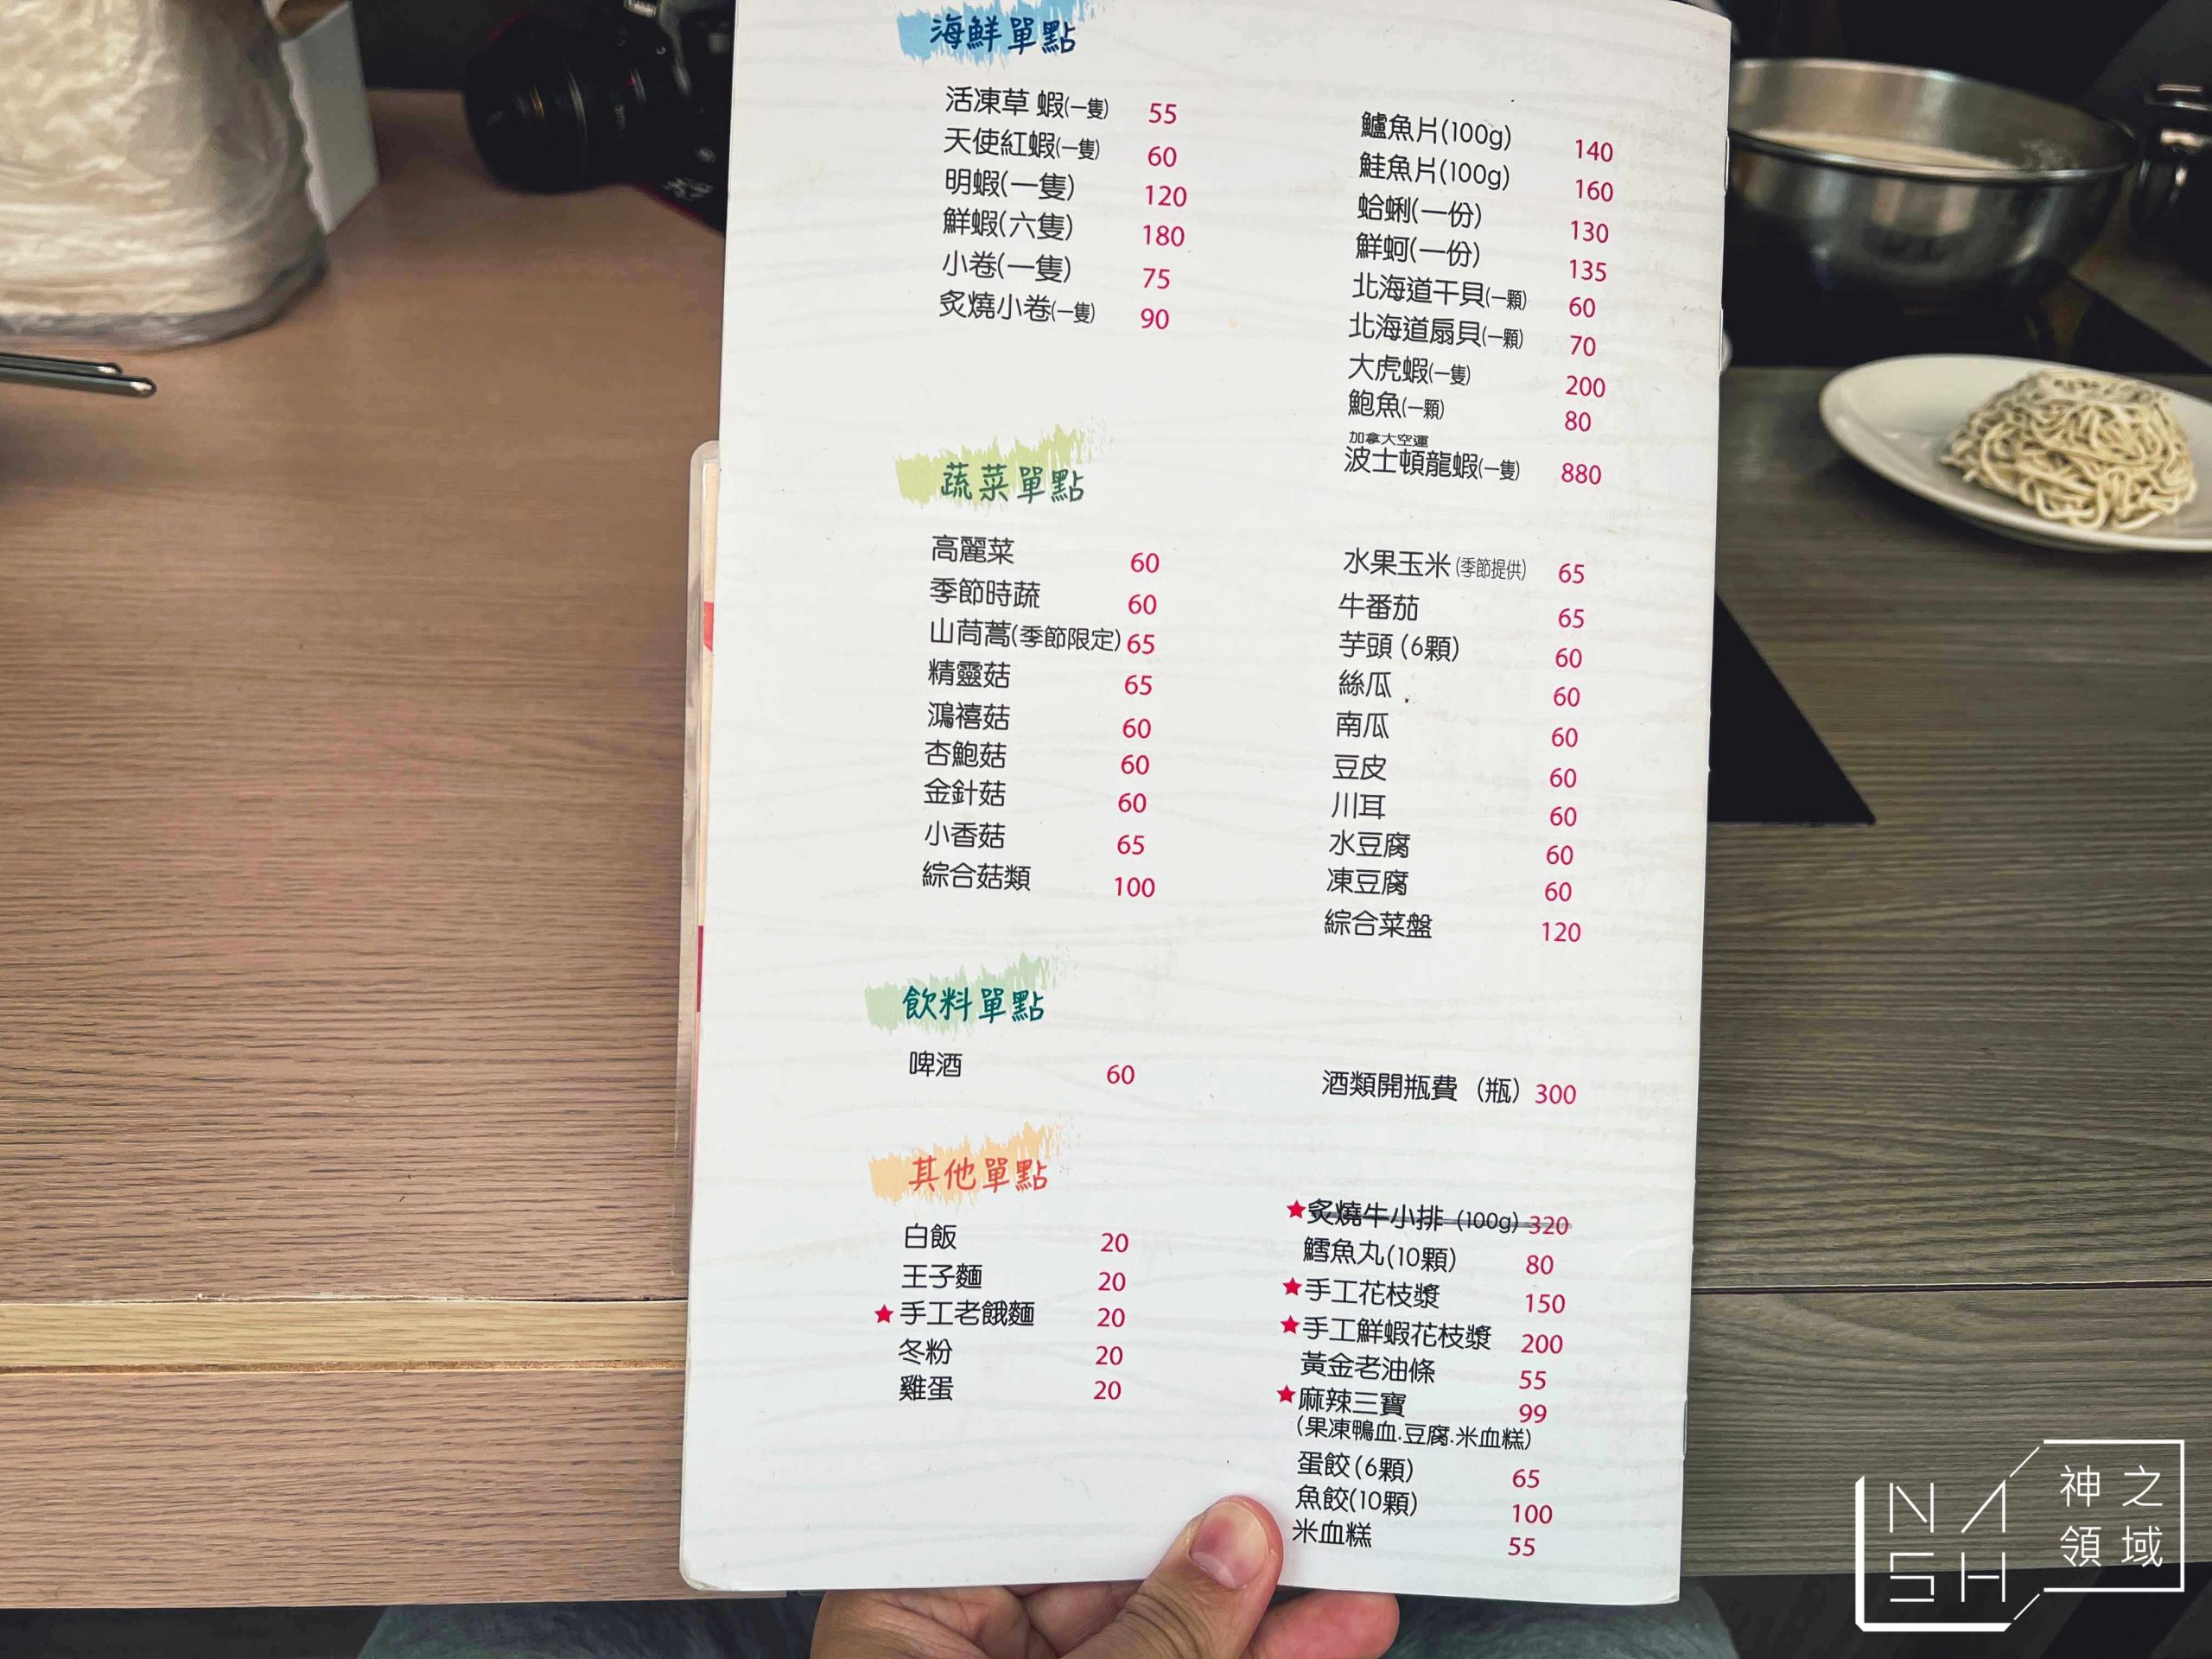 海鮮單點
活凍草 蝦(一隻) 55
天使紅蝦(一隻) 60
明蝦(一隻) 120
鮮蝦(六隻) 180
小卷(一隻) 75
炙燒小卷(一隻) 90
鱸魚片(100g) 140
鮭魚片(100g) 160
蛤蜊(一份) 130
鮮蚵(一份) 135
北海道干貝(一顆) 60
北海道扇貝(一顆) 70
大虎蝦(一隻) 200
鮑魚(一顆) 80
加拿大空運
波士頓龍蝦(一隻) 880
蔬菜單點
高麗菜 60
季節時蔬 60
山茼蒿(季節限定) 65
精靈菇 65
鴻禧菇 60
杏鮑菇 60
金針菇 60
小香菇 65
綜合菇類 100
水果玉米 (季節提供) 65
牛番茄 65
芋頭 (6顆) 60
絲瓜 60
南瓜 60
豆皮 60
川耳 60
水豆腐 60
凍豆腐 60
綜合菜盤 120
飲料單點
啤酒 60
酒類開瓶費 (瓶) 300
其他單點
白飯 20
王子麵 20
★手工老餓麵 20
冬粉 20
雞蛋 20
★炙燒牛小排 (100g) 320
鱈魚丸(10顆) 80
★手工花枝漿 150
★手工鮮蝦花枝漿 200
黃金老油條 55
★麻辣三寶 99
(果凍鴨血.豆腐.米血糕)
蛋餃(6顆) 65
魚餃(10顆) 100
米血糕 55
NASH
神之
領域